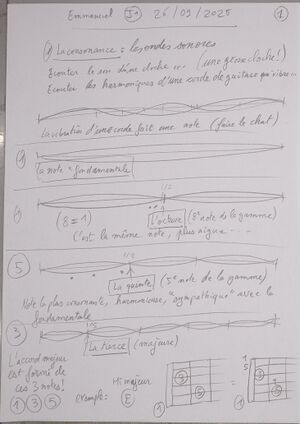 Emmanuel 26/09/2025 1
La consonance : les ondes sonores
Ecouter le son d'une cloche ... (une grosse cloche!)
Ecouter les harmoniques d'une corde de guitare qui vibre...
La vibration d'une corde fait une note (faire le chat)
1
La note "fondamentale"
1/2
(8=1) L'octave (8e note de la gamme)
C'est la même note, plus aigue ...
5
1/3
La quinte (5e note de la gamme)
Note la plus consonante, harmonieuse, "sympathique" avec la
fondamentale
3
1/5
La tierce (majeure)
L'accord majeur
est formé de
ces 3 notes!
1 3 5
exemple:
Mi majeur
E
3
5
=
1
5
3
5